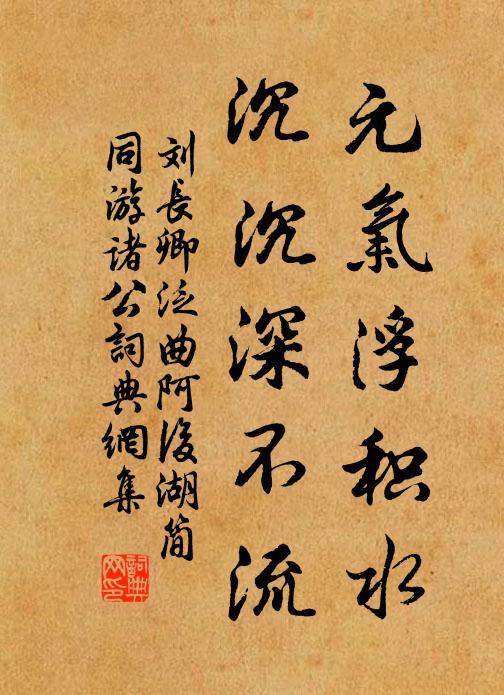 元氣浮积水
沉沉深不流
刘長卿泛曲阿後湖简
同游诸公詞典網集
詞典網印